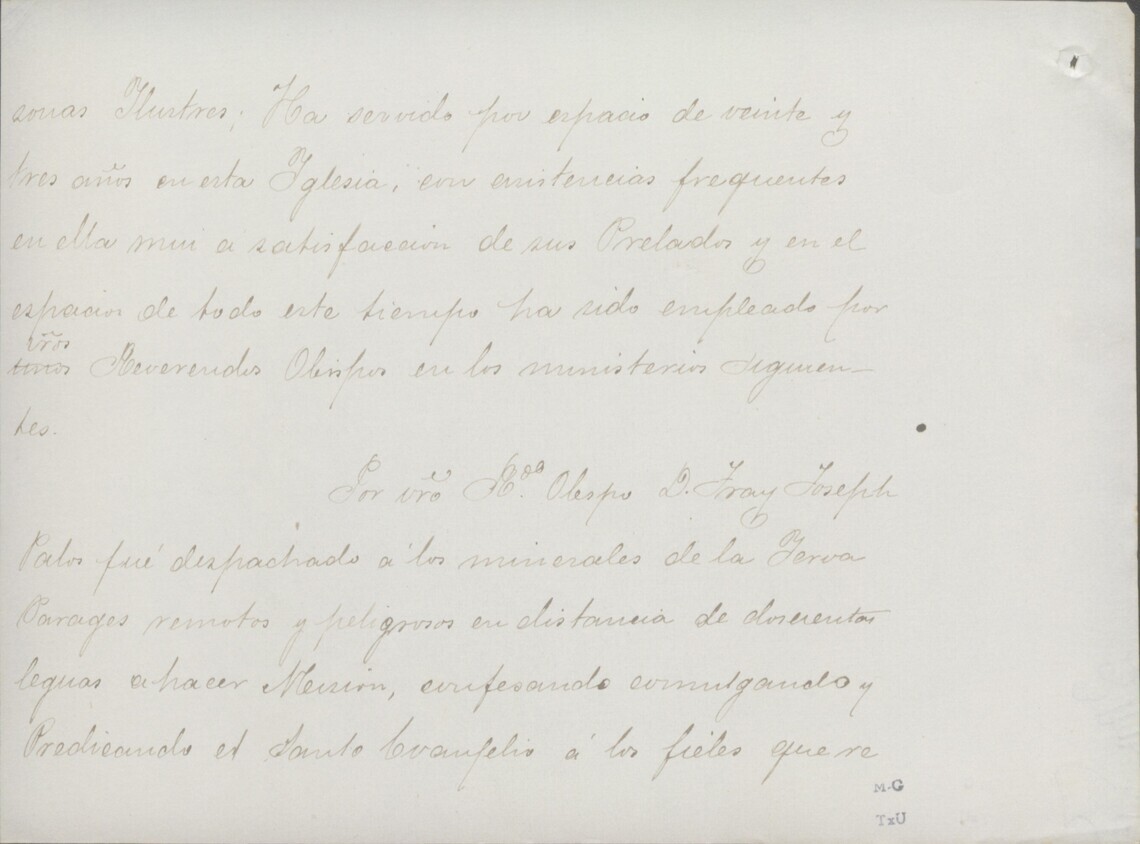 sonas Ilustres; Ha servido por espacio de veinte y
tres años en esta Iglesia, con existencias frequentes
en ella mui a satisfaccion de sus Prelados y en el
espacios de todo este tiempo ha sido empleado por
vr̃os
Reverendos Obispos en los ministerios siguien-
tes.
Por vr̃o R.do Obispo D. Fray Joseph
Palos fué despachado á los minerales de la Yerva
Parages remotos y peligrosos en distancia de doscientas
leguas a hacer Mision, confesando comulgando y
Predicando el Santo Evangelio á los fieles que re
M-G
TxU